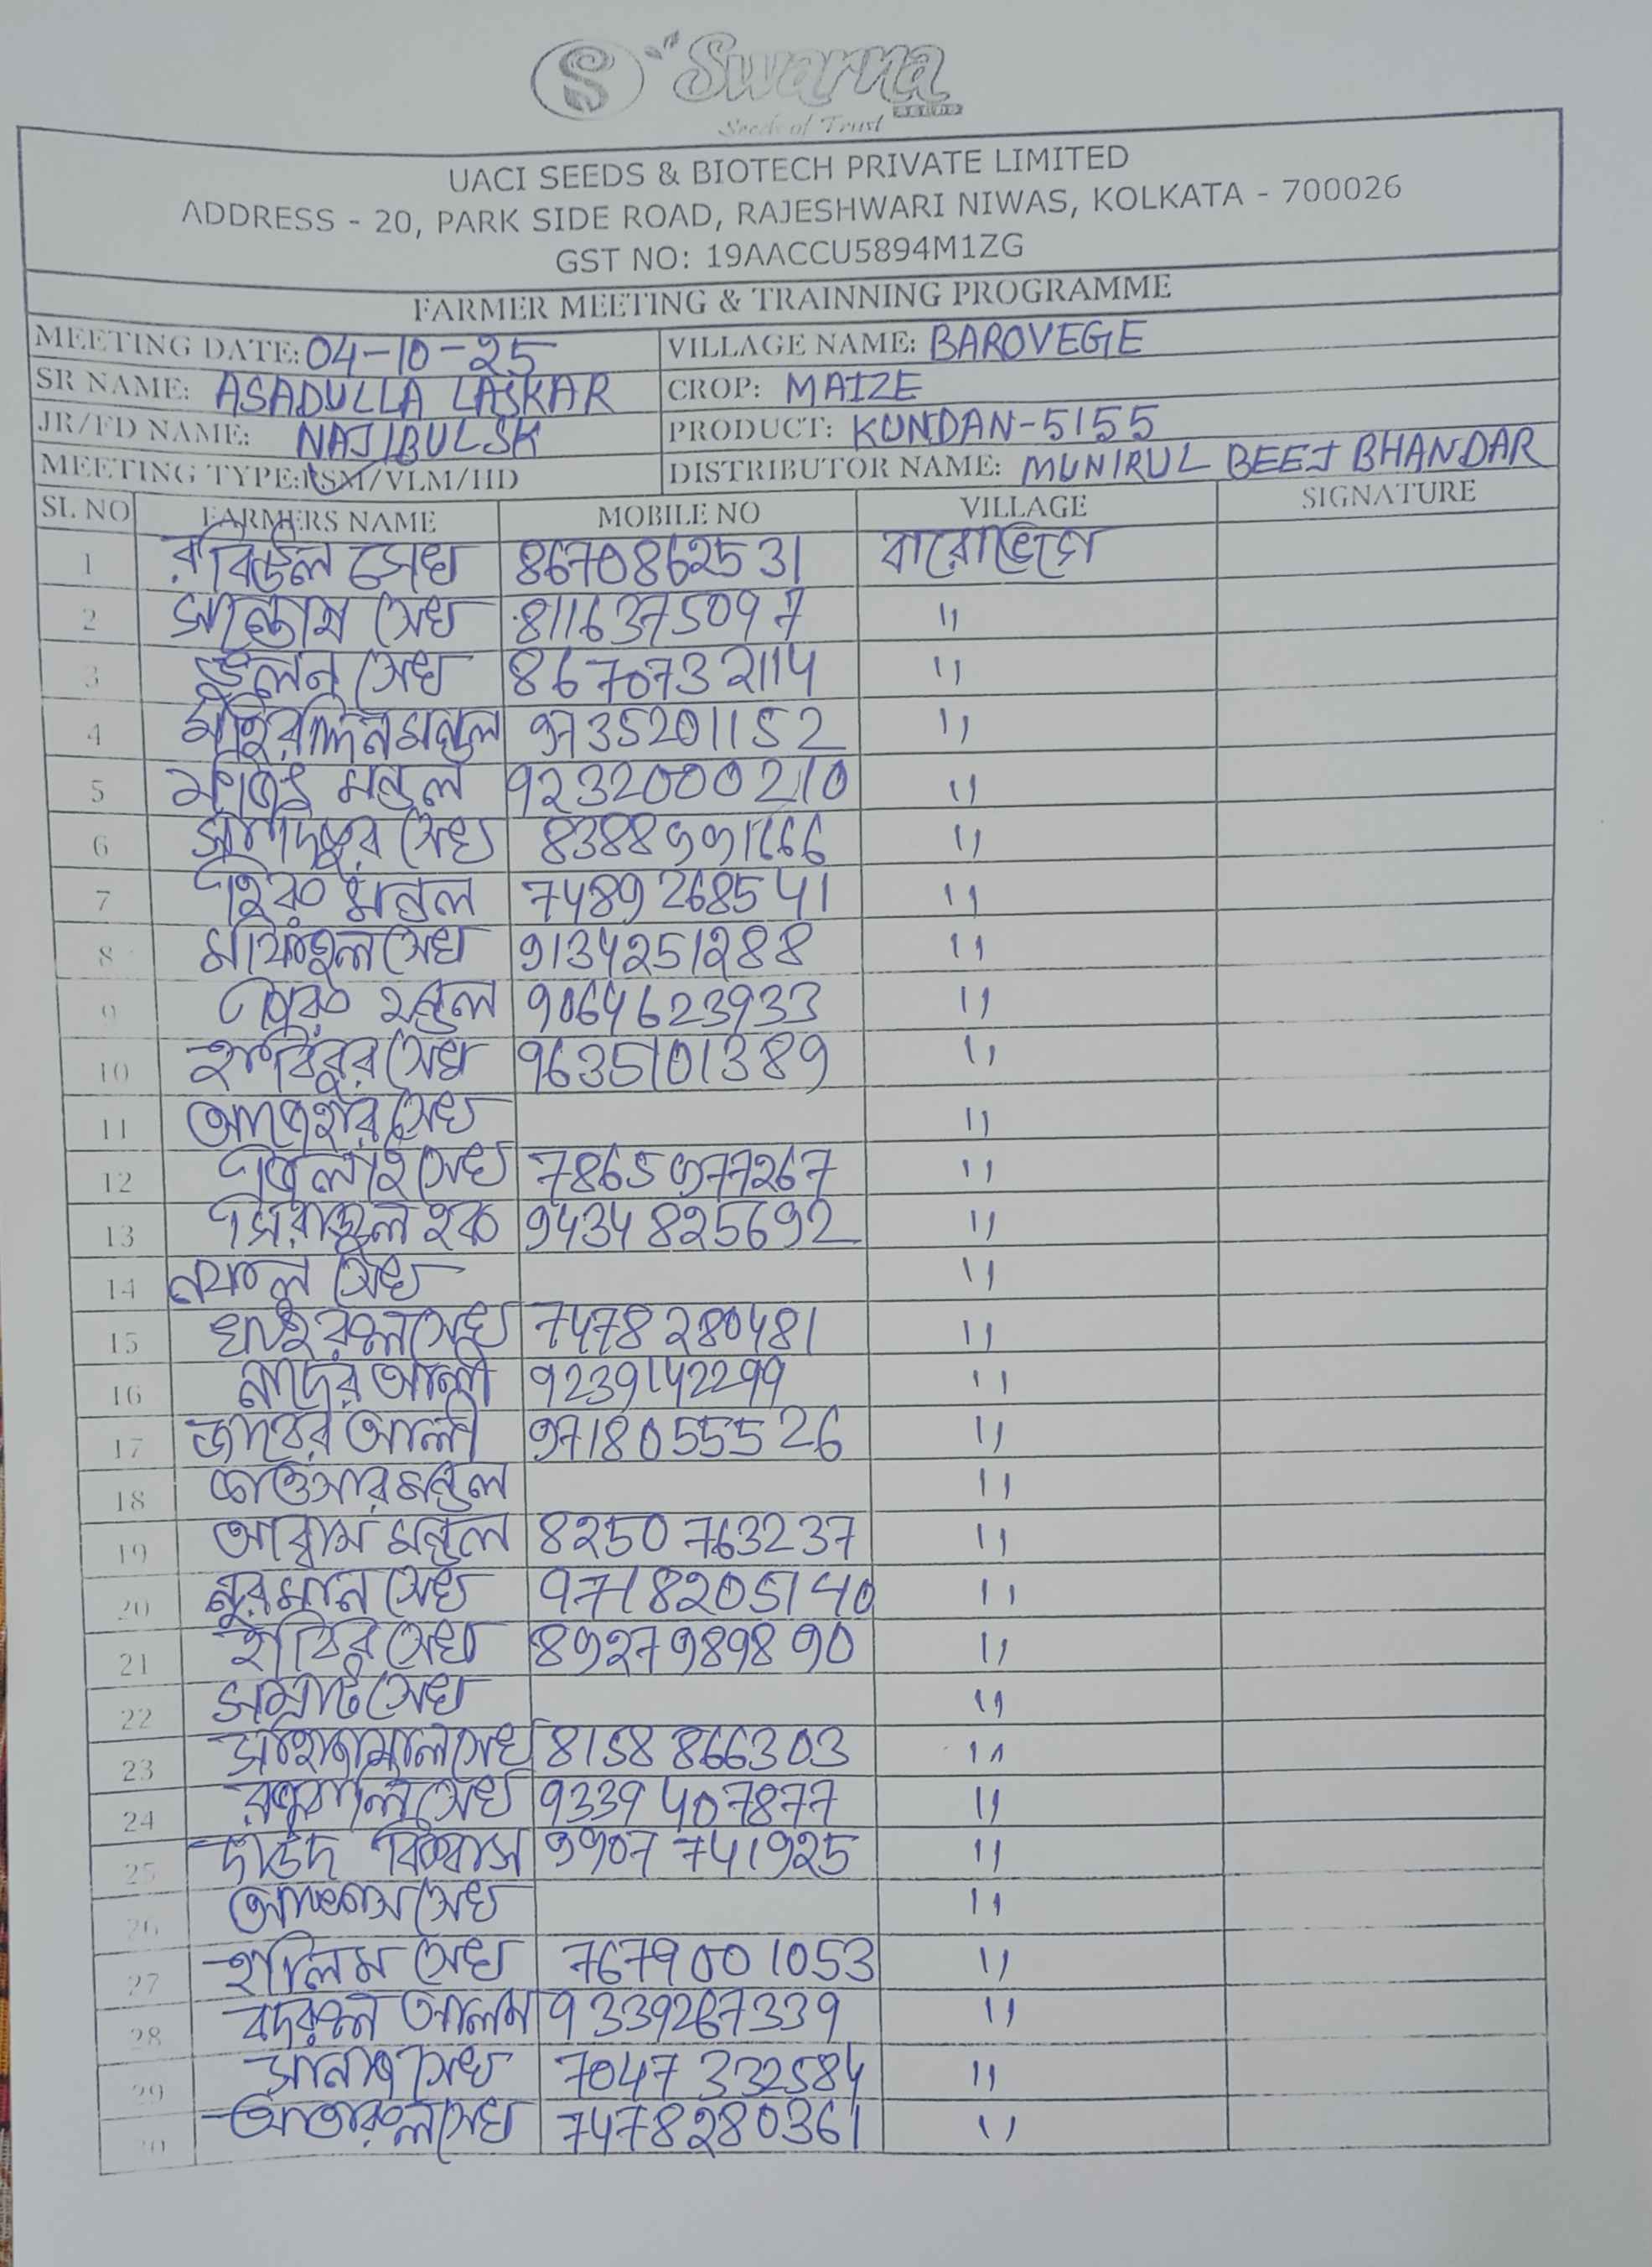 S Swarna
SEEDS
Seeds of Trust
UACI SEEDS & BIOTECH PRIVATE LIMITED
ADDRESS - 20, PARK SIDE ROAD, RAJESHWARI NIWAS, KOLKATA - 700026
GST NO: 19AACCU5894M1ZG
FARMER MEETING & TRAINNING PROGRAMME
MEETING DATE: 04-10-25 VILLAGE NAME: BAROVEGE
SR NAME: ASADULLA LASKAR CROP: MAIZE
JR/FD NAME: NAJIBUL SK PRODUCT: KUNDAN-5155
MEETING TYPE: /VLM/HD DISTRIBUTOR NAME: MUNIRUL BEEJ BHANDAR
SL NO FARMERS NAME MOBILE NO VILLAGE SIGNATURE
1 রবিউল সেখ 8670862531 বারোভেগে
2 সেখ 8116375097 "
3 সেখ 8670732114 "
4 মন্ডল 9735201152 "
5 মন্ডল 9232000210 "
6 সেখ 8388991666 "
7 মন্ডল 7489268541 "
8 সেখ 9134251288 "
9 মন্ডল 9064623933 "
10 হাবিবুর সেখ 9635101389 "
11 সেখ "
12 সেখ 7865977267 "
13 সিরাজুল হক 9434825692 "
14 সেখ "
15 সেখ 7478280481 "
16 নাদের আলী 9239142299 "
17 জাবের আলী 9718055526 "
18 কাওসার মন্ডল "
19 মন্ডল 8250763237 "
20 নুরমান সেখ 9718205140 "
21 হাবির সেখ 8927989890 "
22 সম্রাট সেখ "
23 সেখ 8158866303 "
24 সেখ 9339407877 "
25 দাউদ বিশ্বাস 9907741925 "
26 সেখ "
27 হালিম সেখ 7679001053 "
28 বদরুল আলম 9339267339 "
29 সেখ 7047332584 "
30 সেখ 7478280361 "